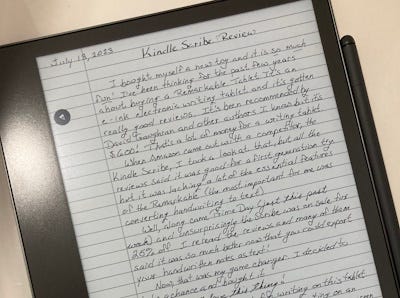 July 18, 2023
Kindle Scribe Review
I bought myself a new toy and it is so much
fun! I've been thinking for the past few years
about buying a Remarkable Tablet. It's an
e-ink electronic writing tablet and it's gotten
really good reviews. It's been recommended by
David Gaughran and other authors I know but it's
$600! That's a lot of money for a writing tablet
When Amazon came out with a competitor, the
Kindle Scribe, I took a look at that, but all the
reviews said it was good for a first generation try
but it was lacking a lot of the essential features
of the Remarkable (the most important for me was
converting handwriting to text)
Well, along came Prime Day (just this past
week) and unsurprisingly the Scribe was on sale for
25% off. I reread the reviews and many of them
said it was so much better now that you could export
your handwritten notes as text!
Now that was my game changer. I decided to
a chance and bought it.
this thing!
writing on this tablet
on an